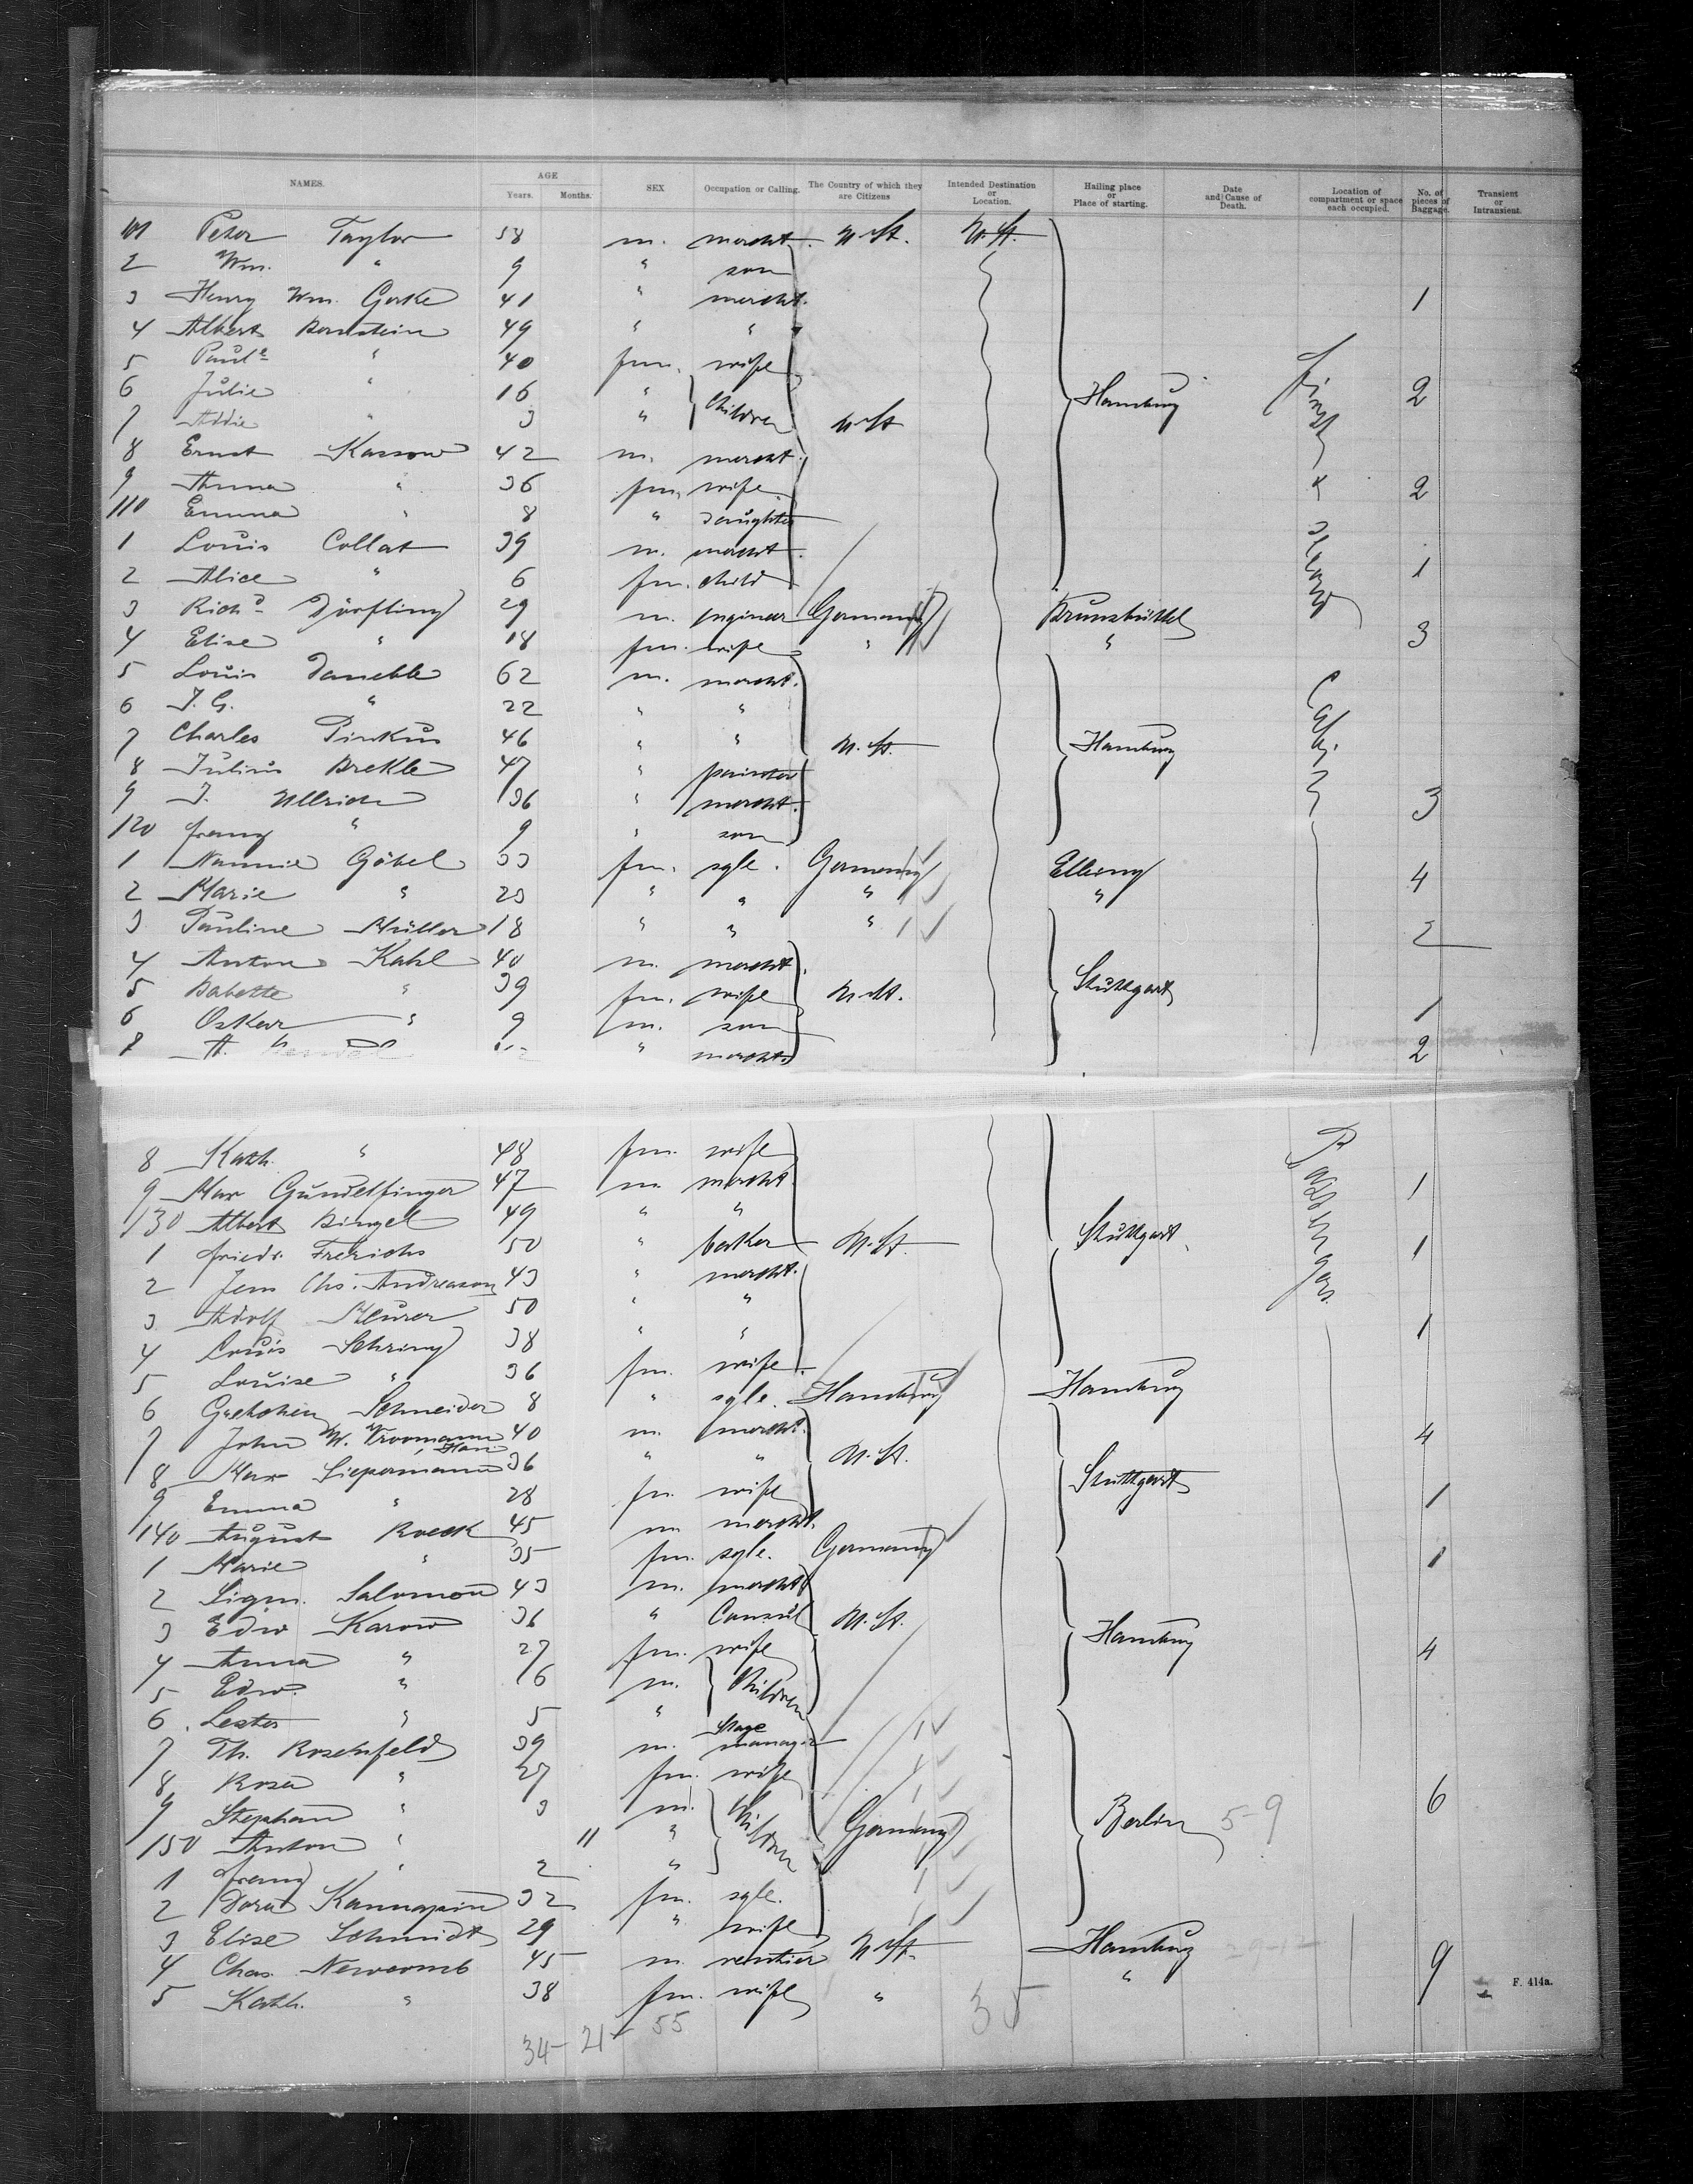 NAMES. AGE Years. Months. SEX Occupation or Calling. The Country of which they are Citizens Intended Destination or Location. Hailing place or Place of starting. Date and Cause of Death. Location of compartment or space each occupied. No. of pieces of Baggage. Transient or Intransient.
101 Peter Taylor 58 m. mercht. U. St. U. St.
2 Wm. " 9 " son
3 Henry Wm. Gerke 41 " mercht. 1
4 Albert Bernstein 49 " "
5 Paule " 40 fm. wife
6 Julie " 16 " Children Hamburg First 2
7 Addie " 3 " U. St
8 Ernst Kassow 42 m. mercht.
9 Anna " 36 fm. wife & 2
110 Emma " 8 " daughter
1 Louis Collat 39 m. mercht.
2 Alice " 6 fm. child 1
3 Richd Dörfling 29 m. engineer Germany Brunsbüttel
4 Elise " 18 fm. wife " " 3
5 Louis 62 m. mercht.
6 J. G. " 22 " "
7 Charles Pinkus 46 " " U. St. Hamburg
8 Julius Brekle 47 " painter
9 J. Ullrich 36 " mercht. 3
120 Franz " 9 " son
1 Nannie Göbel 33 fm. sgle. Germany Elbing
2 Marie " 23 " " " " 4
3 Pauline Müller 18 " " " 2
4 Anton Kahl 40 m. mercht.
5 Babette " 39 fm. wife U. St. Stuttgart
6 Oskar " 9 m. son 1
7 A. " mercht. 2
8 Kath. " 48 fm. wife Passengers.
9 Max Gundelfinger 47 m mercht. 1
130 Albert Bingel 49 " "
1 Friedr. Frerichs 50 " baker U. St. Stuttgart 1
2 Jens Chs. Andreason 43 " mercht.
3 Adolf Meurer 50 " "
4 Louis Sehring 38 " " 1
5 Louise " 36 fm. wife
6 Gretchen Schneider 8 " sgle. Hamburg Hamburg
7 John W. Vroomann 40 m. mercht. 4
8 Max Siepermann 36 " " U. St. Stuttgart
9 Emma " 28 fm. wife 1
140 August Roeck 45 m mercht.
1 Marie " 35 fm. sgle. Germany 1
2 Sigm. Salomon 43 m. mercht.
3 Edw Karow 36 " Consul U. St. Hamburg
4 Anna " 27 fm. wife 4
5 Edw. " 6 m. Children
6 Lester " 5 "
7 Th. Rosenfeld 39 m. Stage manager
8 Rosa " 27 fm. wife
9 Stephan " 3 m. Children 6
150 Anton " 11 " Germany Berlin 5-9
1 Franz " 2 "
2 Dora Kannapin 32 fm. sgle.
3 Elise Schmidt 29 " wife
4 Chas. Newcomb 45 m. rentier U. St. Hamburg
5 Kath. " 38 fm. wife " " 9 F. 414a.
34- 21- 55 35